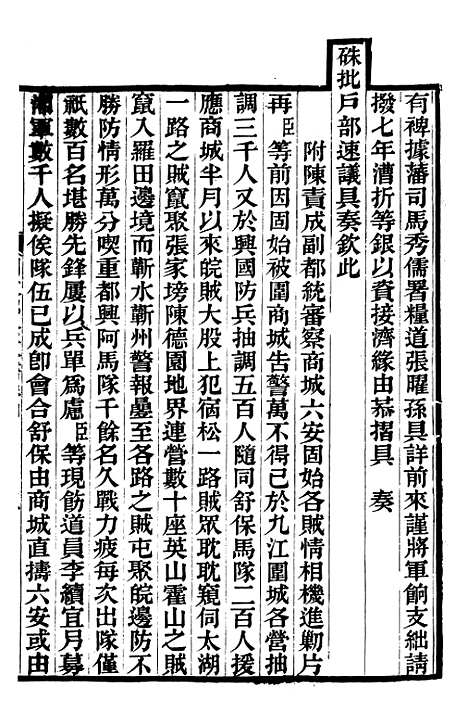 有裨據藩司馬秀儒署糧道張曜孫具詳前來謹將軍餉支絀請
撥七年漕折等銀以資接濟緣由恭摺具　奏
硃批戶部速議具奏欽此
附陳責成副都統審察商城六安固始各賊情相機進勦片
再臣等前因固始被圍商城告警萬不得已於九江圍城各營抽
調三千人又於興國防兵抽調五百人隨同舒保馬隊二百人援
應商城半月以來皖賊大股上犯宿松一路賊眾耽耽窺伺太湖
一路之賊竄聚張家塝陳德園地界連營數十座英山霍山之賊
竄入羅田邊境而蘄水蘄州警報疊至各路之賊屯聚皖邊防不
勝防情形萬分喫重都興阿馬隊千餘名久戰力疲每次出隊僅
祇數百名堪勝先鋒屢以兵單為慮臣等現飭道員李續宜月募
湘軍數千人擬俟隊伍已成卽會合舒保由商城直擣六安或由